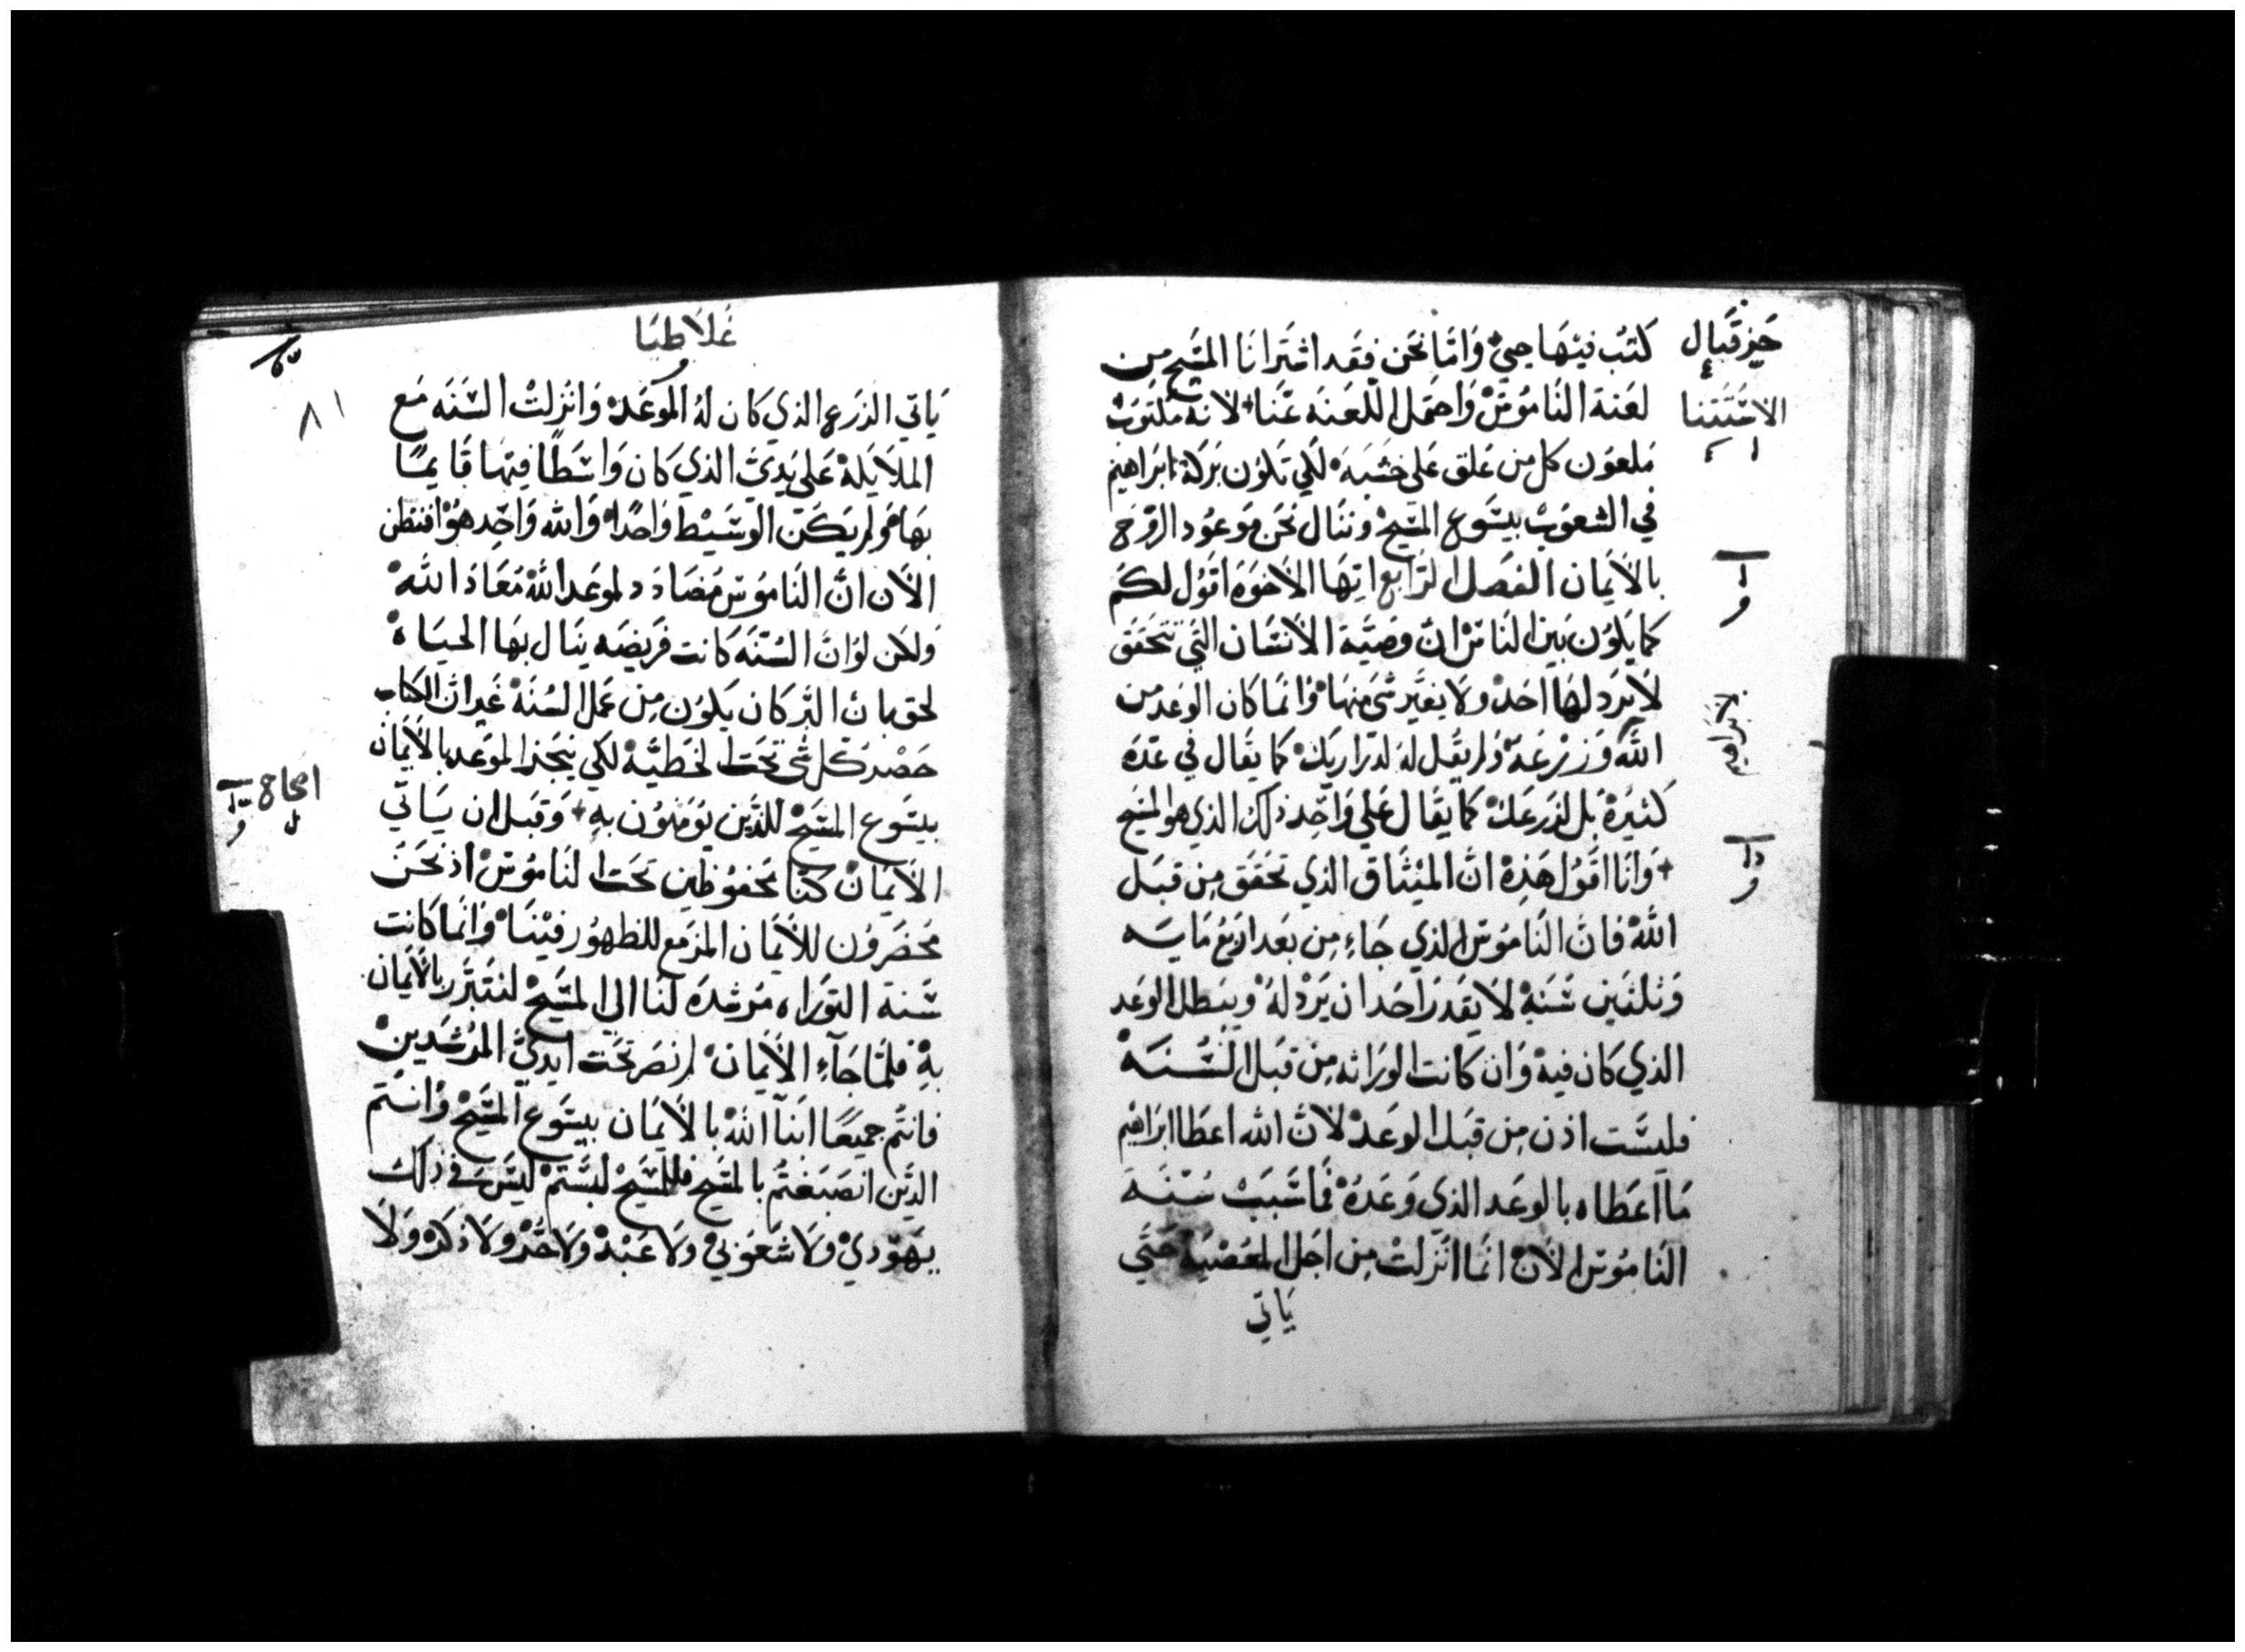 كتب فيها حيي وامّا نحن فقد اشترانا المسيح من
لعنة الناموس واحتمل اللعنه عنا لانه مكتوب
ملعون كل من علق على خشبه لكي تكون بركة ابراهيم
في الشعوب بيسوع المسيح وننال نحن موعود الروح
بالايمان الفصل الرابع ايها الاخوة اقول لكم
كما يكون بين الناس ان وصية الانسان التي تتحقق
لا يرد لها احد ولا يغير شي منها وانما كان الوعد من
الله وزرعه ولم يقل له لدراريك كما يقال في عدة
كثيرة بل لذرعك كما يقال علي واحد ذلك الذي هو المسيح
وانا اقول هذه ان الميثاق الذي تحقق من قبل
الله فان الناموس الذي جاء من بعد اربع مايه
وثلثين سنة لا يقدر احد ان يرد له ويبطل الوعد
الذي كان فيه وان كانت الوراثه من قبل السنه
فليست اذن من قبل الوعد لان الله اعطا ابراهيم
ما اعطاه بالوعد الذي وعده فما سبب سنة
الناموس الان انما انزلت من اجل المعصية حتي
ياتي
حزقيال
الاستثنا
ابراهيم
غلاطيا
٨١
ياتي الذرع الذي كان له الموعد وانزلت السنه مع
الملايكة علي يدي الذي كان واسطا فيها قايما
بها ولم يكن الوسيط واحدا والله واحد هو افنظن
الان ان الناموس مضادد لموعد الله معاذ الله
ولكن لو ان السنه كانت فريضه ينال بها الحياة
لحق بان البر كان يكون من عمل السنة غير ان الكتاب
حصر كل شي تحت الخطية لكي ينجز الموعد بالايمان
بيسوع المسيح للذين يومنون به وقبل ان ياتي
الايمان كنا محفوظين تحت الناموس اذ نحن
محصرون للايمان المزمع للظهور فينا وانما كانت
سنة التوراه مرشده لنا الي المسيح لنتبرر بالايمان
به فلما جاء الايمان لم نصر تحت ايدي المرشدين
فانتم جميعا ابنآ الله بالايمان بيسوع المسيح وانتم
الذين انصبغتم بالمسيح فللمسيح لبستم ليس في ذلك
يهودي ولا شعوبي ولا عبد ولا حر ولا ذكر ولا
اصحاح